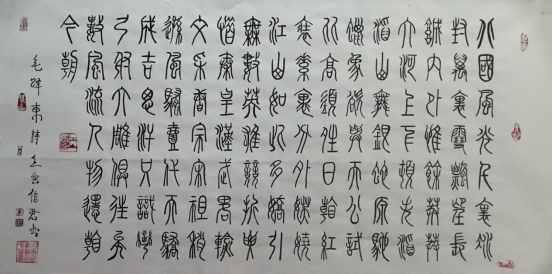 北國風光千里冰
封萬里雪飄望長
城內外惟餘莽莽
大河上下頓失滔
滔山舞銀蛇原馳
蠟象欲與天公試
比高須晴日看紅
裝素裹分外妖嬈
江山如此多嬌引
無數英雄競折腰
惜秦皇漢武略輸
文采唐宗宋祖稍
遜風騷一代天驕
成吉思汗只識彎
弓射大雕俱往矣
數風流人物還看
今朝
毛澤東詩 信君書